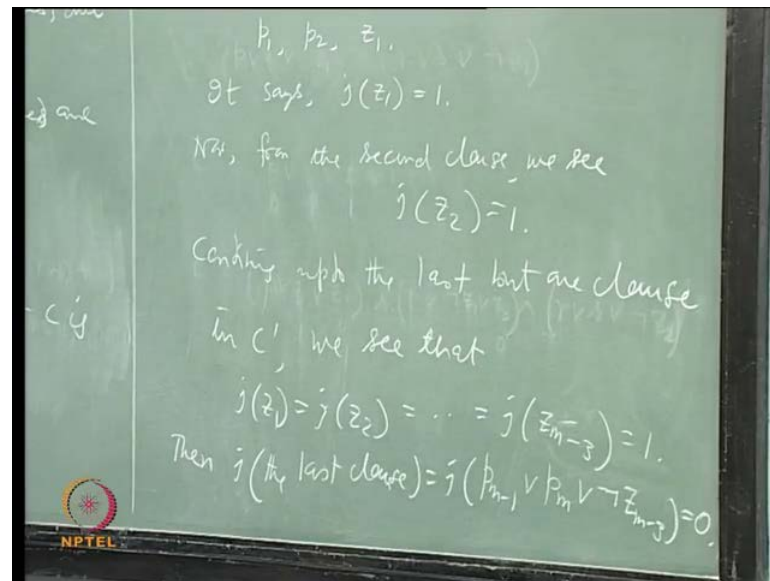 p₁, p₂, z₁.
It says, j(z₁) = 1.
Now, from the second clause, we see
j(z₂) = 1.
and
Continuing upto the last but one clause
C is
in C', we see that
j(z₁) = j(z₂) = ... = j(z_{m-3}) = 1.
Then j(the last clause) = j(p_{m-1} ∨ p_m ∨ ¬z_{m-3}) = 0.
NPTEL